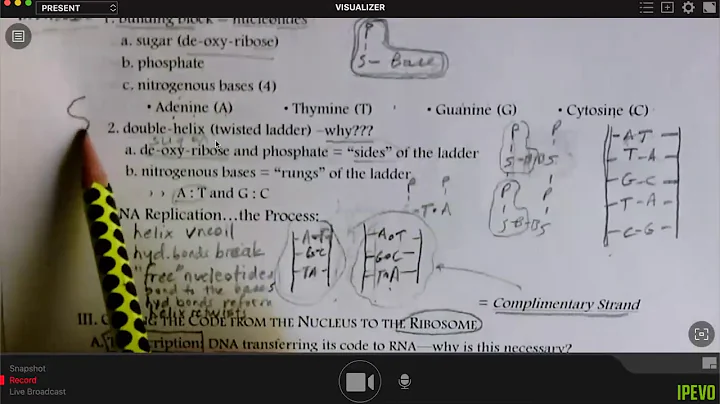 PRESENT
VISUALIZER
1. building block = nucleotides
a. sugar (de-oxy-ribose)
b. phosphate
c. nitrogenous bases (4)
• Adenine (A) • Thymine (T) • Guanine (G) • Cytosine (C)
P
S - Base
S
2. double-helix (twisted ladder) –why???
sugar
a. de-oxy-ribose and phosphate = "sides" of the ladder
b. nitrogenous bases = "rungs" of the ladder
› › A : T and G : C
P P
T•A
P P
S
P P
S-B-B S
-A-T-
-T-A-
-G-C-
-T-A-
-C-G-
NA Replication…the Process:
helix uncoil
hyd. bonds break
"free" nucleotides
bond to the bases
hyd bonds reform
helix retwists
-A-T-
-G-C-
-TA-
-A•T-
-G•C-
-T•A-
= Complimentary Strand
THE CODE FROM THE NUCLEUS TO THE RIBOSOME
III.
A.
DNA transferring its code to RNA—why is this necessary?
Snapshot
Record
Live Broadcast
IPEVO